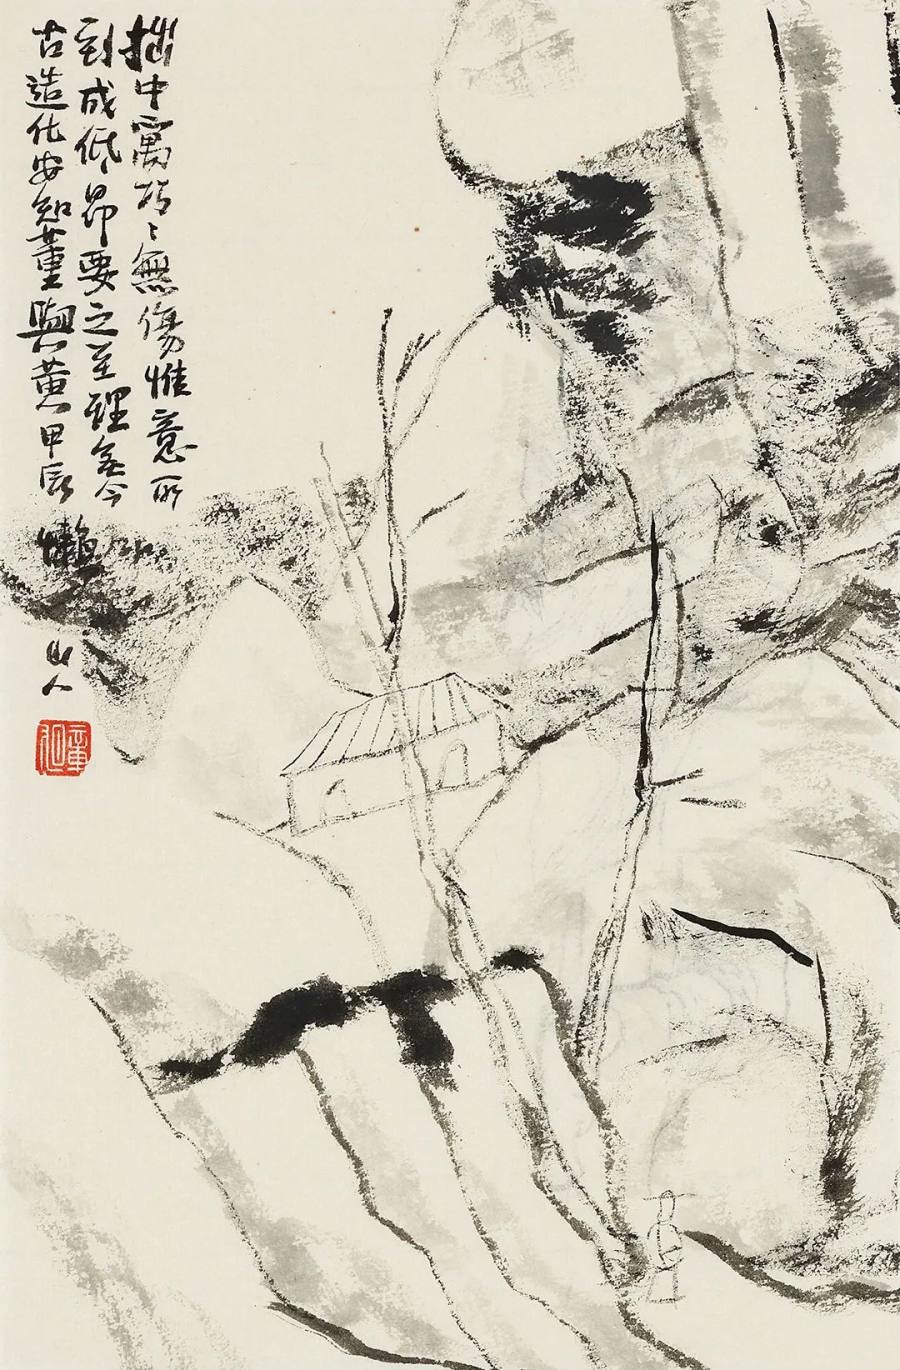 拙中寓巧〻無傷惟意所
到成低昂要之至理無今
古造化安知董與黃甲辰懶山人